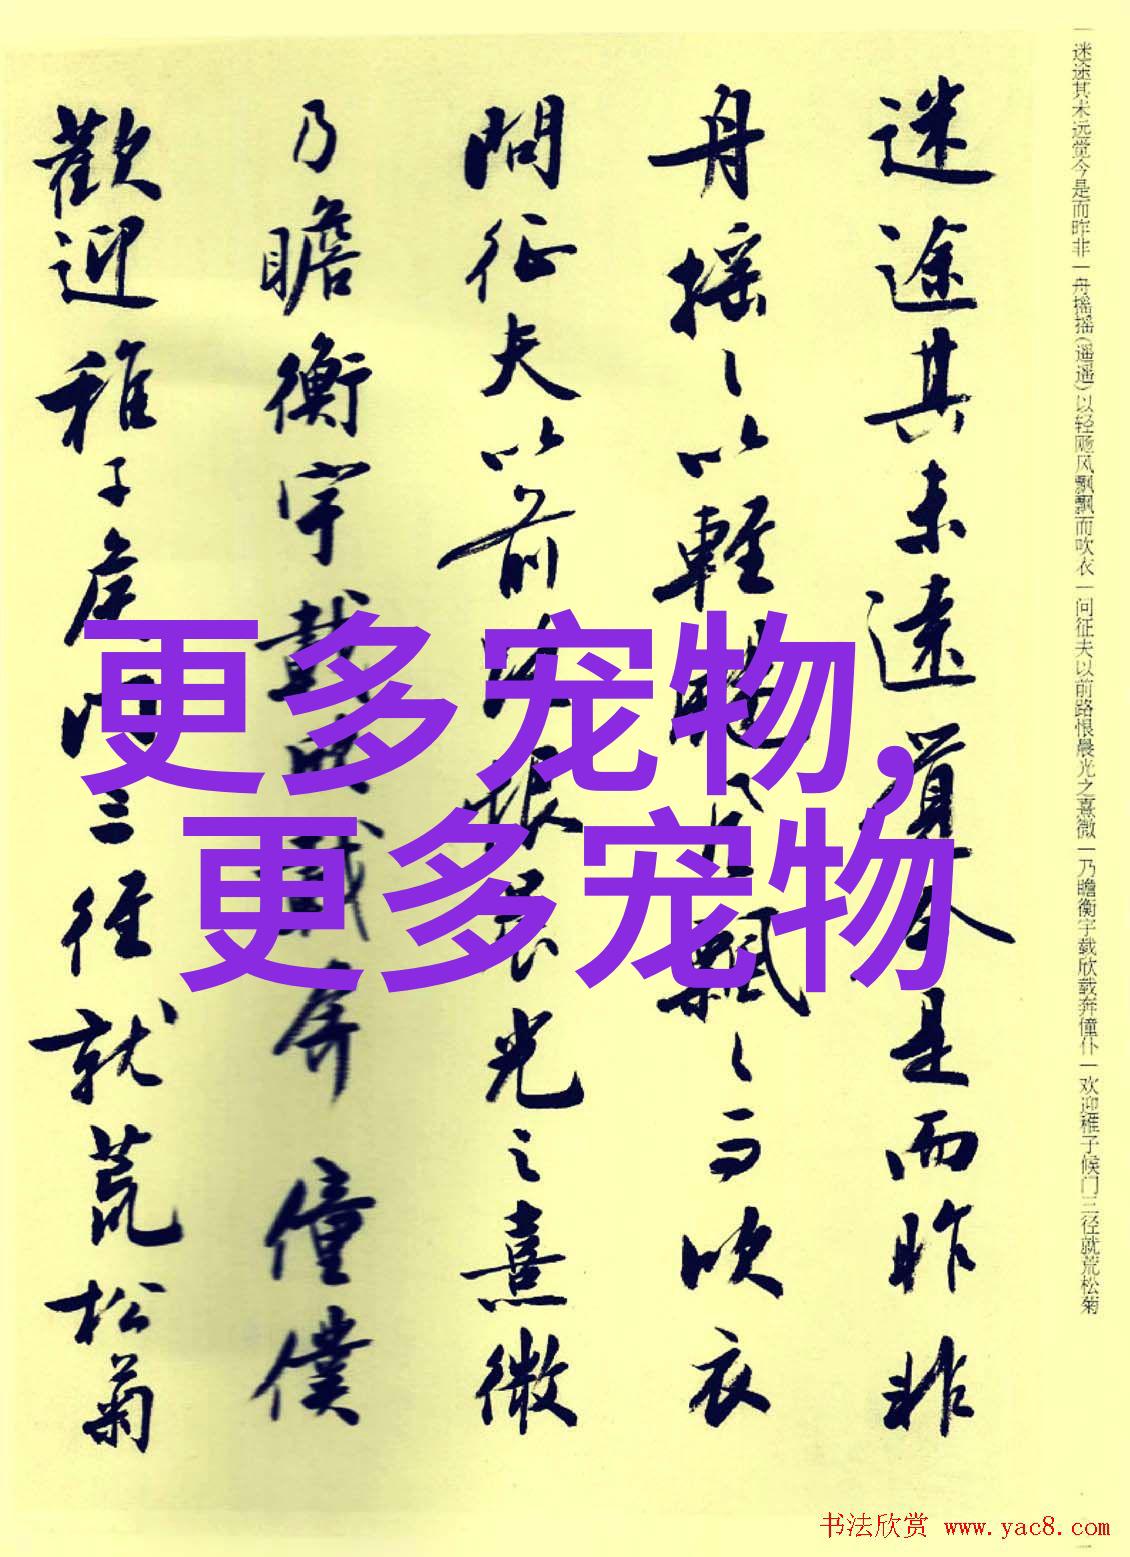 一迷途其未远觉今是而昨非一舟摇摇(遥遥)以轻飏风飘飘而吹衣一问征夫以前路恨晨光之熹微一乃瞻衡宇载欣载奔僮仆一欢迎稚子候门三径就荒松菊
迷途其未遠覺今是而昨非
舟搖〻以輕颺風飄〻而吹衣
問征夫以前路恨晨光之熹微
乃瞻衡宇載欣載奔僮僕
歡迎稚子候門三徑就荒松菊
更多宠物,
更多宠物
书法欣赏 www.yac8.com